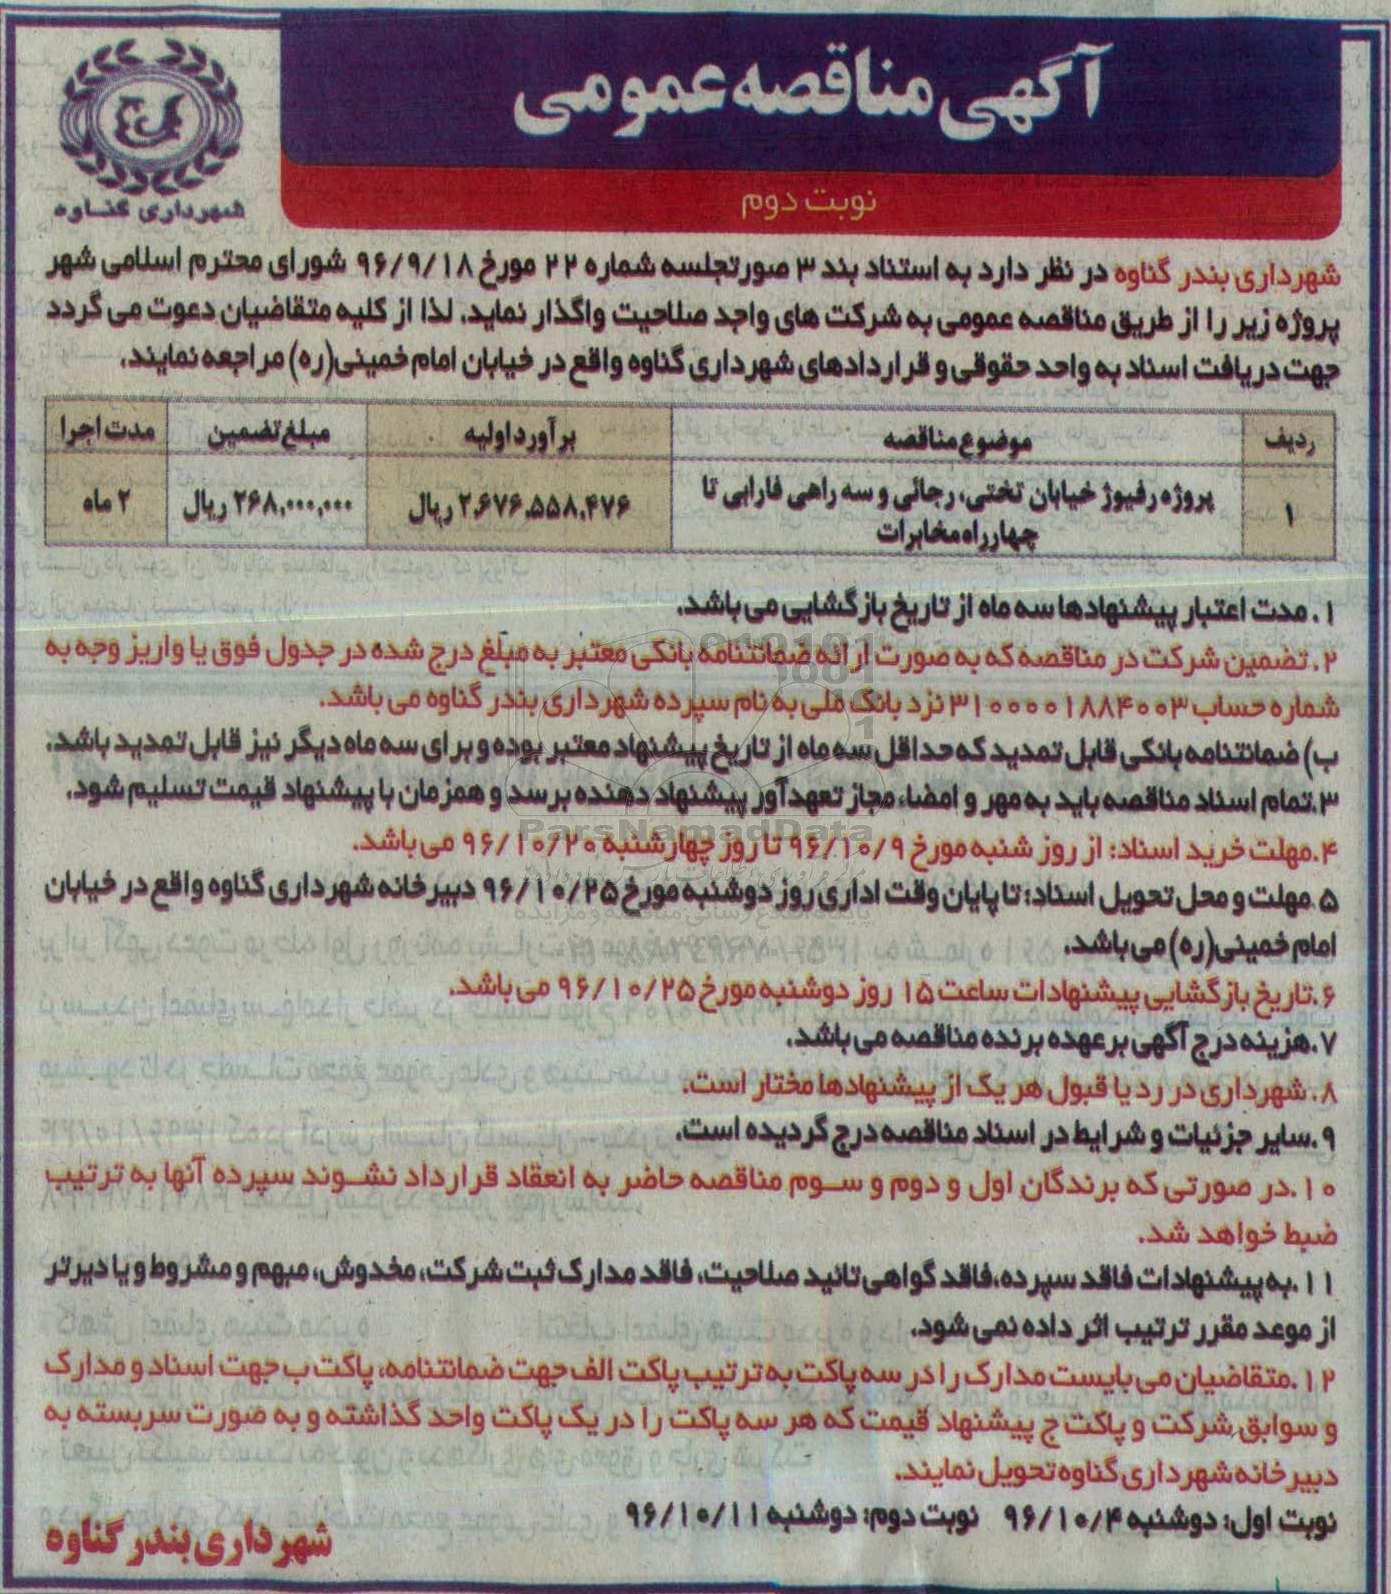 آگهی مناقصه عمومی
نوبت دوم
شهرداری گناوه
شهرداری بندر گناوه در نظر دارد به استناد بند ۳ صورتجلسه شماره ۲۲ مورخ ۹۶/۹/۱۸ شورای محترم اسلامی شهر
پروژه زیر را از طریق مناقصه عمومی به شرکت های واجد صلاحیت واگذار نماید. لذا از کلیه متقاضیان دعوت می گردد
جهت دریافت اسناد به واحد حقوقی و قراردادهای شهرداری گناوه واقع در خیابان امام خمینی(ره) مراجعه نمایند.
ردیف موضوع مناقصه برآورد اولیه مبلغ تضمین مدت اجرا
۱ پروژه رفیوژ خیابان تختی، رجائی و سه راهی فارابی تا چهارراه مخابرات ۲,۶۷۶,۵۵۸,۴۷۶ ریال ۲۶۸,۰۰۰,۰۰۰ ریال ۲ ماه
۱. مدت اعتبار پیشنهادها سه ماه از تاریخ بازگشایی می باشد.
۲. تضمین شرکت در مناقصه که به صورت ارائه ضمانتنامه بانکی معتبر به مبلغ درج شده در جدول فوق یا واریز وجه به
شماره حساب ۳۱۰۰۰۰۱۸۸۴۰۰۳ نزد بانک ملی به نام سپرده شهرداری بندر گناوه می باشد.
ب) ضمانتنامه بانکی قابل تمدید که حداقل سه ماه از تاریخ پیشنهاد معتبر بوده و برای سه ماه دیگر نیز قابل تمدید باشد.
۳.تمام اسناد مناقصه باید به مهر و امضاء مجاز تعهدآور پیشنهاد دهنده برسد و همزمان با پیشنهاد قیمت تسلیم شود.
ParsNamadData
۴.مهلت خرید اسناد: از روز شنبه مورخ ۹۶/۱۰/۹ تا روز چهارشنبه ۹۶/۱۰/۲۰ می باشد.
۵.مهلت و محل تحویل اسناد: تا پایان وقت اداری روز دوشنبه مورخ ۹۶/۱۰/۲۵ دبیرخانه شهرداری گناوه واقع در خیابان
امام خمینی(ره) می باشد.
۶.تاریخ بازگشایی پیشنهادات ساعت ۱۵ روز دوشنبه مورخ ۹۶/۱۰/۲۵ می باشد.
۷.هزینه درج آگهی بر عهده برنده مناقصه می باشد.
۸. شهرداری در رد یا قبول هر یک از پیشنهادها مختار است.
۹.سایر جزئیات و شرایط در اسناد مناقصه درج گردیده است.
۱۰.در صورتی که برندگان اول و دوم و سوم مناقصه حاضر به انعقاد قرارداد نشوند سپرده آنها به ترتیب
ضبط خواهد شد.
۱۱.به پیشنهادات فاقد سپرده،فاقد گواهی تائید صلاحیت، فاقد مدارک ثبت شرکت، مخدوش، مبهم و مشروط و یا دیرتر
از موعد مقرر ترتیب اثر داده نمی شود.
۱۲.متقاضیان می بایست مدارک را در سه پاکت به ترتیب پاکت الف جهت ضمانتنامه، پاکت ب جهت اسناد و مدارک
و سوابق شرکت و پاکت ج پیشنهاد قیمت که هر سه پاکت را در یک پاکت واحد گذاشته و به صورت سربسته به
دبیرخانه شهرداری گناوه تحویل نمایند.
نوبت اول: دوشنبه ۹۶/۱۰/۴ نوبت دوم: دوشنبه ۹۶/۱۰/۱۱
شهرداری بندر گناوه